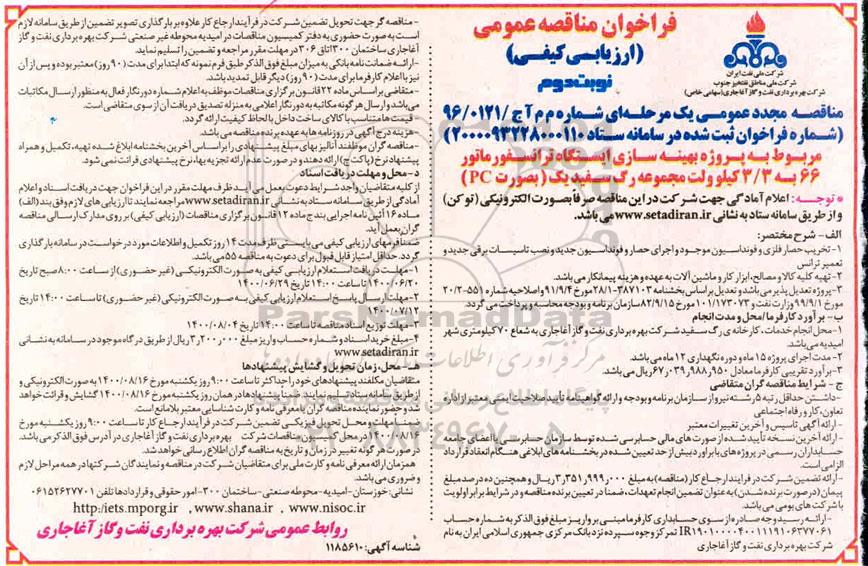 فراخوان مناقصه عمومی
(ارزیابی کیفی)
نوبت دوم
شرکت ملی نفت ایران
شرکت ملی مناطق نفتخیز جنوب
شرکت بهره برداری نفت و گاز آغاجاری (سهامی خاص)
مناقصه مجدد عمومی یک مرحله‌ای شماره م م آ ج /۹۶/۰۱۲۱
(شماره فراخوان ثبت شده در سامانه ستاد ۲۰۰۰۰۹۳۲۲۸۰۰۰۱۱۰)
مربوط به پروژه بهینه سازی ایستگاه ترانسفورماتور
۶۶ به ۳/۳ کیلو ولت مجموعه رگ سفید یک (بصورت PC)
* توجه: اعلام آمادگی جهت شرکت در این مناقصه صرفاً بصورت الکترونیکی (توکن)
و از طریق سامانه ستاد به نشانی www.setadiran.ir می باشد.
الف - شرح مختصر:
۱- تخریب حصار فلزی و فونداسیون موجود و اجرای حصار و فونداسیون جدید و نصب تاسیسات برقی جدید و
تعمیر ترانس
۲- تهیه کلیه کالا و مصالح، ابزار کار و ماشین آلات به عهده و هزینه پیمانکار می باشد.
۳- پروژه تعدیل پذیر می باشد و تعدیل بر اساس بخشنامه ۲۸/۱-۳۸۷۱۰۳ مورخ ۹۱/۹/۴ و اصلاحیه شماره ۲۰/۲-۵۵۱
مورخ ۹۹/۹/۱ وزارت نفت و ۱۰۱/۱۷۳۰۷۳ مورخ ۸۲/۹/۱۵ سازمان برنامه و بودجه محاسبه و پرداخت می گردد.
ب- برآورد کارفرما/ محل و مدت انجام
۱- محل انجام خدمات، کارخانه ی رگ سفید شرکت بهره برداری نفت و گاز آغاجاری به شعاع ۷۰ کیلومتری شهر
امیدیه می باشد.
۲- مدت اجرای پروژه ۱۵ ماه و دوره نگهداری ۱۲ ماه می باشد.
۳- برآورد تقریبی کارفرما معادل ۶۷,۰۳۹,۹۸۸,۹۵۰ ریال می باشد.
ج - شرایط مناقصه گران متقاضی
- داشتن حداقل رتبه ۵ رشته نیرو از سازمان برنامه و بودجه و ارائه گواهینامه تایید صلاحیت ایمنی معتبر از اداره
تعاون، کار و رفاه اجتماعی
- ارائه آگهی تاسیس و آخرین تغییرات معتبر
- ارائه آخرین نسخه تأیید شده از صورت های مالی حسابرسی شده توسط سازمان حسابرسی یا اعضای جامعه
حسابداران رسمی در پروژه های با برآورد بیش از حد تعیین شده در بخشنامه های ابلاغی هنگام انعقاد قرارداد
الزامی است.
- ارائه تضمین شرکت در فرآیند ارجاع کار (مناقصه) به مبلغ ۳,۳۵۱,۹۹۹,۰۰۰ ریال و همچنین ده درصد مبلغ
پیمان (در صورت برنده شدن) به عنوان تضمین انجام تعهدات، ضمناً در تعیین برنده مناقصه و در شرایط برابر اولویت
با شرکت های بومی می باشد.
- ارائه رسید وجه صادره از سوی حسابداری کارفرما مبنی بر واریز مبلغ فوق الذکر به شماره حساب
IR۱۹۰۱۰۰۰۰۴۰۰۱۱۱۹۱۰۶۳۷۷۰۶۱ تمرکز وجوه سپرده نزد بانک مرکزی جمهوری اسلامی ایران به نام
شرکت بهره برداری نفت و گاز آغاجاری
- مناقصه گر جهت تحویل تضمین شرکت در فرآیند ارجاع کار علاوه بر بارگذاری تصویر تضمین از طریق سامانه لازم
است به صورت حضوری به دفتر کمیسیون مناقصات در امیدیه محوطه غیر صنعتی شرکت بهره برداری نفت و گاز
آغاجاری ساختمان ۳۰۰ اتاق ۳۰۶ در مهلت مقرر مراجعه و تضمین را تسلیم نماید.
- ارائه ضمانت نامه بانکی به میزان مبلغ فوق الذکر طبق فرم نمونه که ابتدا برای مدت (۹۰ روز) معتبر بوده و پس از آن
نیز با اعلام کارفرما برای مدت (۹۰ روز) دیگر قابل تمدید باشد.
- متقاضی بر اساس ماده ۲۲ قانون برگزاری مناقصات موظف به اعلام شماره دورنگار فعال به منظور ارسال مکاتبات
می باشد و ارسال هر گونه مکاتبه به دورنگار اعلامی به منزله تصدیق دریافت آن از سوی متقاضی است.
قیمت ها متناسب با کالای ساخت داخل با لحاظ کیفیت ارائه گردد.
- هزینه درج آگهی در روزنامه ها به عهده برنده مناقصه می باشد.
- مناقصه گران موظفند آنالیز بهای مبلغ پیشنهادی را بر اساس آخرین بخشنامه ابلاغ شده تهیه، تکمیل و همراه
پیشنهاد نرخ (پاکت ج) ارائه دهند و در صورت عدم ارائه تجزیه بها، نرخ پیشنهادی قرائت نمی شود.
د- محل و مهلت دریافت اسناد
از کلیه متقاضیان واجد شرایط دعوت بعمل می آید ظرف مهلت مقرر در این فراخوان جهت دریافت اسناد و اعلام
آمادگی از طریق سامانه ستاد به نشانی www.setadiran.ir مراجعه نمایند تا ارزیابی های لازم وفق بند (الف)
ماده ۱۶ آئین نامه اجرایی بند ج ماده ۱۲ قانون برگزاری مناقصات (ارزیابی کیفی) بر روی مدارک ارسالی مناقصه
گران بعمل آید.
ضمنا فرمهای ارزیابی کیفی می بایستی ظرف مدت ۱۴ روز تکمیل و اطلاعات مورد درخواست در سامانه بارگذاری
گردد. حداقل امتیاز قابل قبول برای دعوت به مناقصه ۵۵ می باشد.
۱- مهلت دریافت استعلام ارزیابی کیفی به صورت الکترونیکی (غیر حضوری) از ساعت ۸:۰۰ صبح تاریخ
۱۴۰۰/۰۶/۲۰ تا ساعت ۱۴:۰۰ تاریخ ۱۴۰۰/۰۶/۲۹
۲- مهلت ارسال پاسخ استعلام ارزیابی کیفی به صورت الکترونیکی (غیر حضوری) تا ساعت ۱۴:۰۰ تاریخ
۱۴۰۰/۰۷/۱۲
۳- مهلت توزیع اسناد مناقصه تا ساعت ۱۴:۰۰ تاریخ ۱۴۰۰/۰۸/۰۴
۴- مبلغ خرید اسناد و شماره حساب واریز مبلغ ۳,۲۰۰,۰۰۰ ریال از طریق درگاه موجود در سامانه به نشانی
www.setadiran.ir
هـ - محل، زمان تحویل و گشایش پیشنهادها
متقاضیان مکلفند پیشنهادهای خود را حداکثر تا ساعت ۹:۰۰ روز یکشنبه مورخ ۱۴۰۰/۰۸/۱۶ به صورت الکترونیکی و
از طریق سامانه ستاد تسلیم نمایند ضمنا پیشنهادها در همان روز یکشنبه مورخ ۱۴۰۰/۰۸/۱۶ گشایش و قرائت خواهد
شد و حضور نماینده مناقصه گران با معرفی نامه و کارت شناسایی معتبر بلامانع است.
ضمناً مهلت و محل تحویل فیزیکی تضمین شرکت در فرآیند ارجاع کار تا ساعت ۹:۰۰ روز یکشنبه مورخ
۱۴۰۰/۰۸/۱۶ در محل کمیسیون مناقصات شرکت بهره برداری نفت و گاز آغاجاری در آدرس فوق الذکر می باشد.
در صورت هر گونه تغییر در زمان و تاریخ به مناقصه گران اطلاع رسانی خواهد شد.
همزمان ارائه معرفی نامه و کارت ملی برای متقاضیان شرکت در مناقصه و نمایندگان شرکتها در همه مراحل لازم
و ضروری می باشد.
نشانی: خوزستان - امیدیه - محوطه صنعتی - ساختمان ۳۰۰ - امور حقوقی و قراردادها تلفن ۰۶۱۵۲۶۲۷۷۰۱
http://iets.mporg.ir , www.shana.ir , www.nisoc.ir
روابط عمومی شرکت بهره برداری نفت و گاز آغاجاری
شناسه آگهی: ۱۱۸۵۶۱۰
ParsNamadData